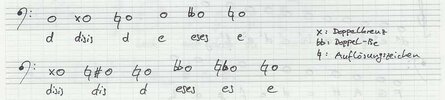 d disis d e eses e
x: Doppelkreuz
bb: Doppel-Be
♮: Auflösungszeichen
disis dis d eses es e